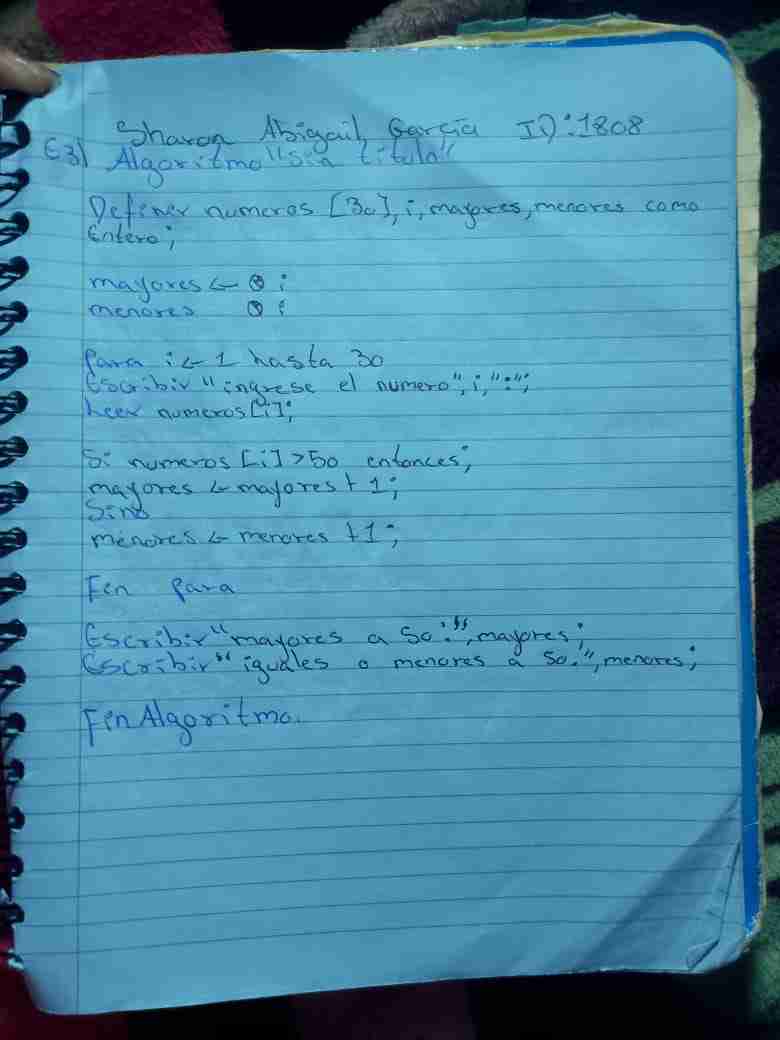 Sharon Abigail García ID:1808
E3) Algoritmo "Sin título"
Definer numeros [30], i, mayores, menores como
Entero;
mayores ← 0;
menores 0;
Para i ← 1 hasta 30
Escribir "ingrese el numero", i, ":";
Leer numeros[i];
Si numeros [i] >50 entonces;
mayores ← mayores + 1;
Sino
menores ← menores +1;
Fin para
Escribir "mayores a 50:", mayores;
Escribir "iguales o menores a 50:", menores;
Fin Algoritmo.